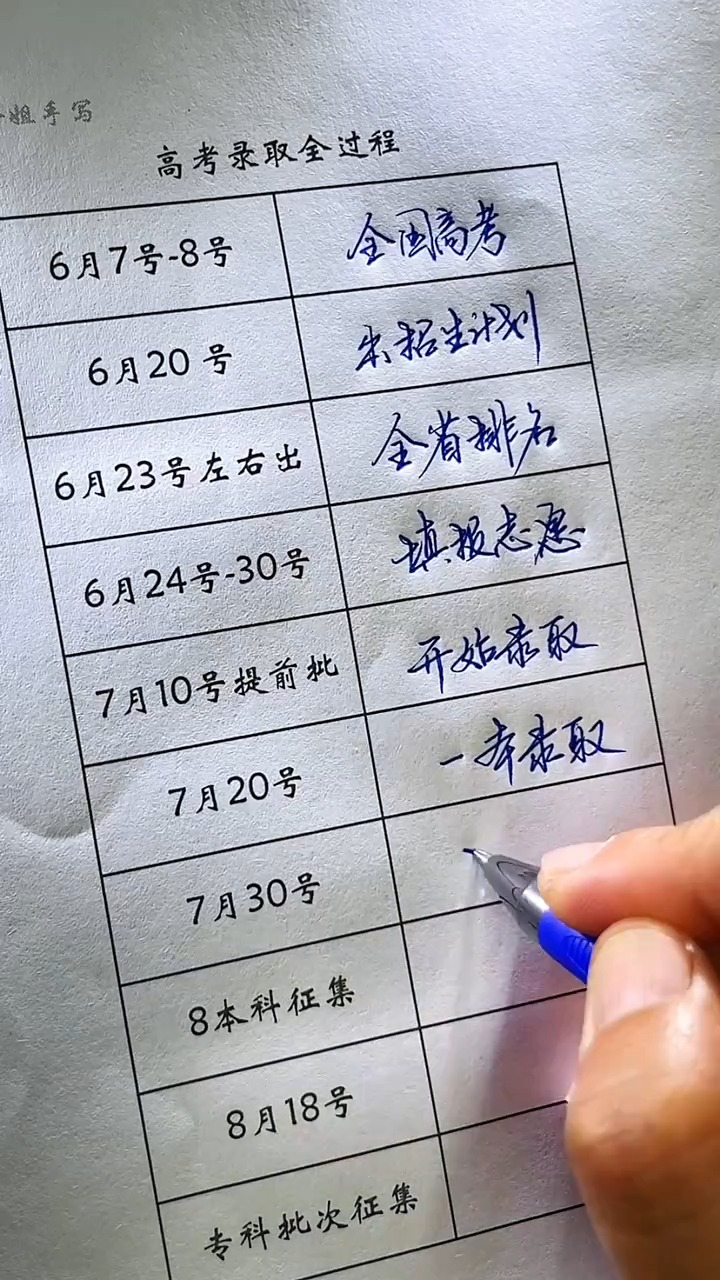 姐手写
高考录取全过程
6月7号-8号 全国高考
6月20 号 出招生计划
6月23号左右出 全省排名
6月24号-30号 填报志愿
7月10号提前批 开始录取
7月20号 一本录取
7月30号
8本科征集
8月18号
专科批次征集